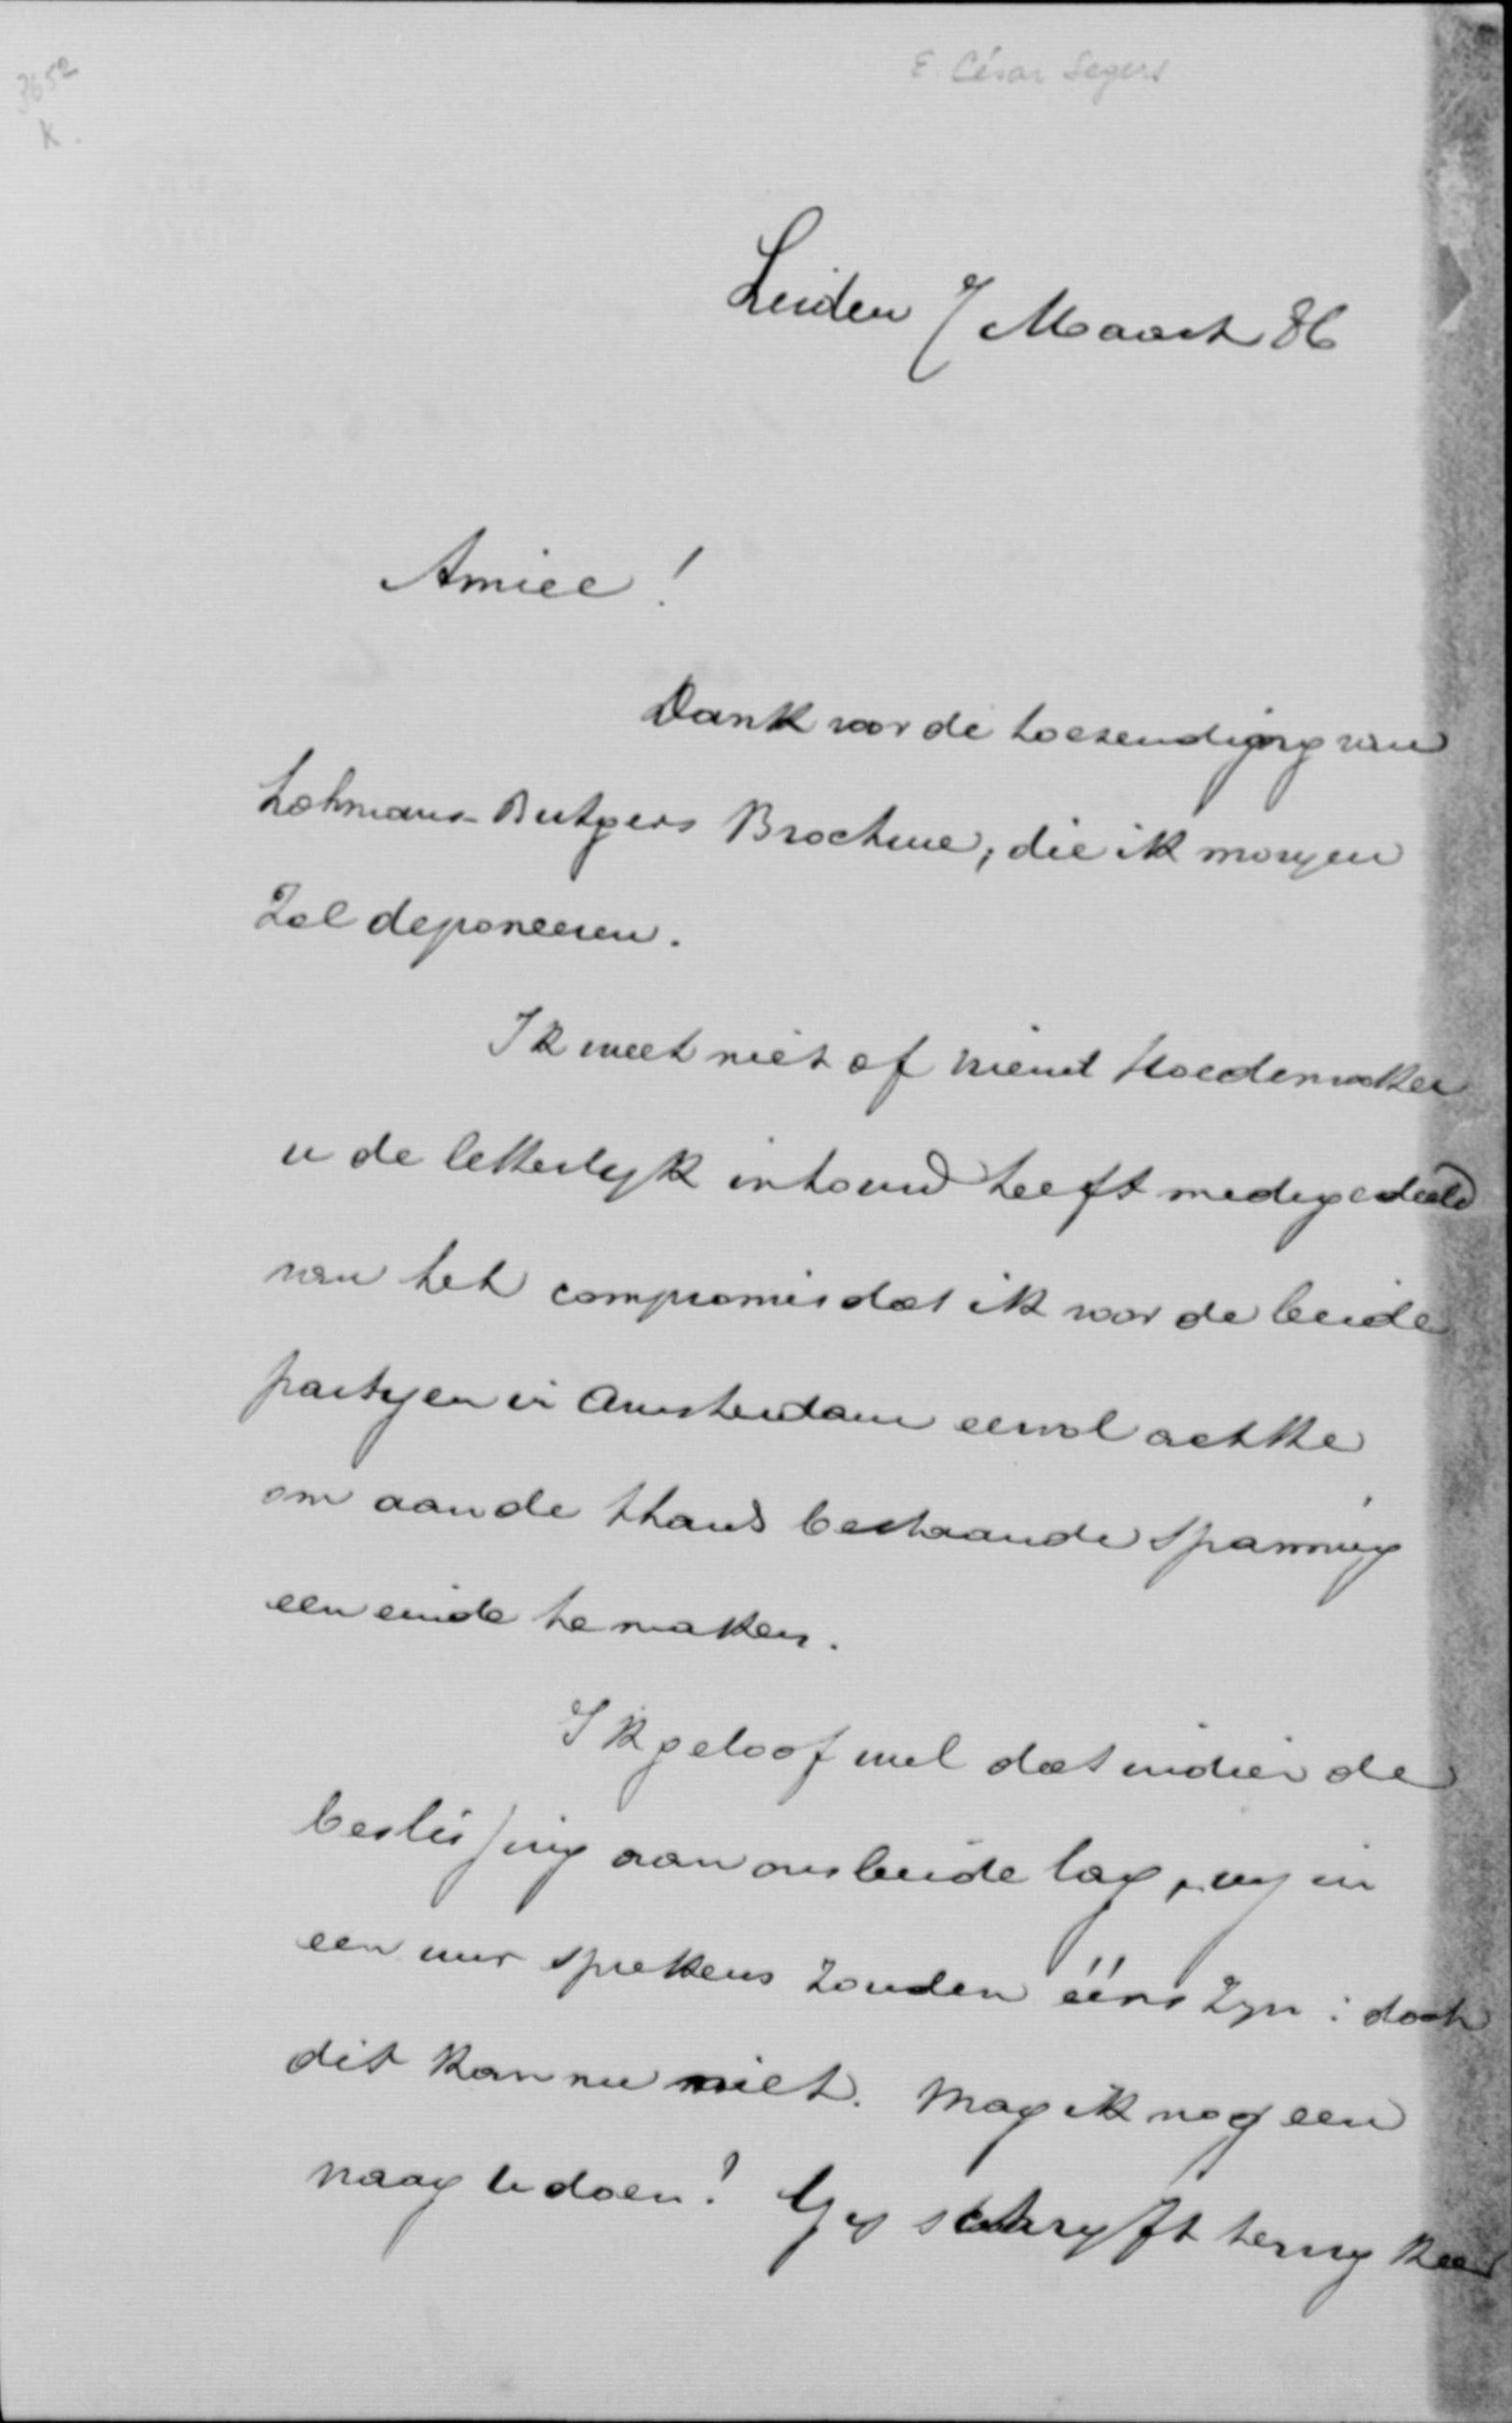 E. César Segers
3652
K.
Leiden 7 Maart 86
Amice!
Dank voor de toezending van
Lohmans-Rutgers Brochure, die ik morgen
zal deponeeren.
Ik weet niet of vriend Hoedemaker
u de letterlyk inhoud heeft medegedeeld
van het compromis dat ik voor de beide
partyen in Amsterdam eervol achtte
om aan de thans bestaande spanning
een einde te maken.
Ik geloof wel dat indien de
beslissing aan ons beide lag, wy in
een uur sprekens zouden ééns zyn: doch
dit kan nu niet. Mag ik nog een
vraag u doen? Gy schryft terug keer